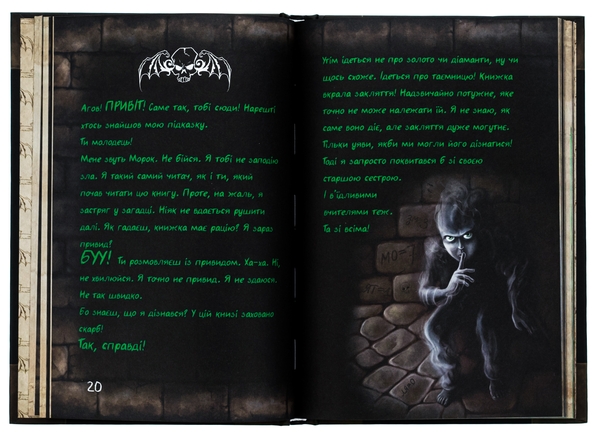 Агов! ПРИВІТ! Саме так, тобі сюди! Нарешті
хтось знайшов мою підказку.
Ти молодець!
Мене звуть Морок. Не бійся. Я тобі не заподію
зла. Я такий самий читач, як і ти, який
почав читати цю книгу. Проте, на жаль, я
застряг у загадці. Ніяк не вдається рушити
далі. Як гадаєш, книжка має рацію? Я зараз
привид?
БУУ! Ти розмовляєш із привидом. Ха-ха. Ні,
не хвилюйся. Я точно не привид. Я не здаюся.
Не так швидко.
Бо знаєш, що я дізнався? У цій книзі заховано
скарб!
Так, справді!
20
Утім ідеться не про золото чи діаманти, ну чи
щось схоже. Ідеться про таємницю! Книжка
вкрала закляття! Надзвичайно потужне, яке
точно не може належати їй. Я не знаю, як
саме воно діє, але закляття дуже могутнє.
Тільки уяви, якби ми могли його дізнатися!
Тоді я запросто поквитався б зі своєю
старшою сестрою.
І в'їдливими
вчителями теж.
Та зі всіма!
МО